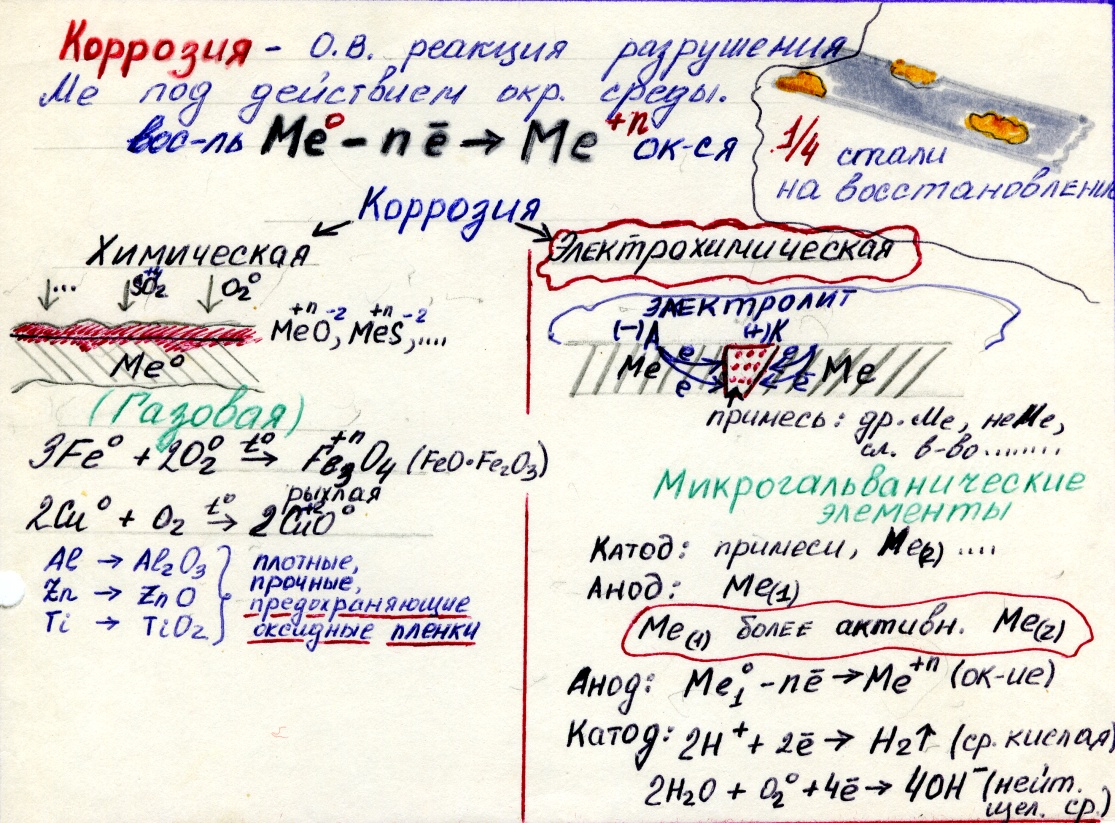 Коррозия - О.В. реакция разрушения
Ме под действием окр. среды.
вос-ль Me⁰ - n ē → Me⁺ⁿ ок-ся
1/4 стали
на восстановление
Коррозия
Химическая
... SO₂⁺⁴ O₂⁰
Me⁺ⁿO⁻², Me⁺ⁿS⁻², ....
Me⁰
(Газовая)
3Fe⁰ + 2O₂⁰ t⁰→ Fe₃⁺ⁿO₄ (FeO·Fe₂O₃)
рыхлая
2Cu⁰ + O₂ t⁰→ 2Cu⁺²O⁰
Al → Al₂O₃ } плотные,
прочные,
Zn → ZnO предохраняющие
Ti → TiO₂ оксидные пленки
Электрохимическая
электролит
(-)А (+)К
Me е е ē е Me
примесь: др. Ме, неМе,
сл. в-во........
Микрогальванические
элементы
Катод: примеси, Me(2) ....
Анод: Me(1)
Me(1) более активн. Me(2)
Анод: Me₁⁰ - nē → Me⁺ⁿ (ок-ие)
Катод: 2H⁺ + 2ē → H₂↑ (ср. кислая)
2H₂O + O₂⁰ + 4ē → 4OH⁻ (нейт.
щел. ср.)